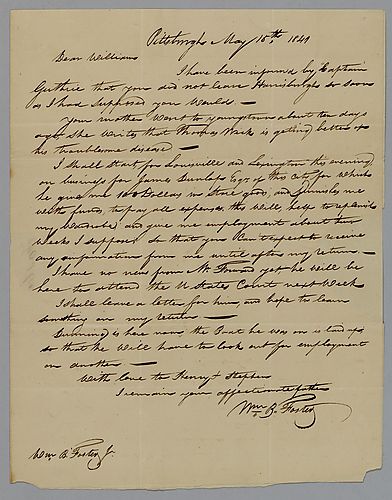 Pittsburgh May 15th, 1841
Dear William
I have been informed by Captain
Guthrie that you did not leave Harrisburgh so soon
as I had supposed you would —
Your mother went to youngstown about ten days
ago. She writes that Thomas Wick is getting better of
his troublesome disease —
I shall start for Louisville and Lexington this evening
on business for James Dunlop Esqr. of this City, for which
he gives me 100 Dollars in store goods, and furnishes me
with funds to pay all expenses, this will help to replenish
my Wardrobe and give me employment about two
weeks I suppose so that you can't expect to receive
any information from me until after my return —
I have no news from Mr. yet he will be
here to attend the U States Court next week
I shall leave a letter for him, and hope to learn
something on my return —
Dunning is here now, the Boat he was on is laid up
so that he will have to look out for employment
on another —
With love to Henry & Stephen
I remain your affectionate father
Wm. B. Foster
Wm. B. Foster Jr.